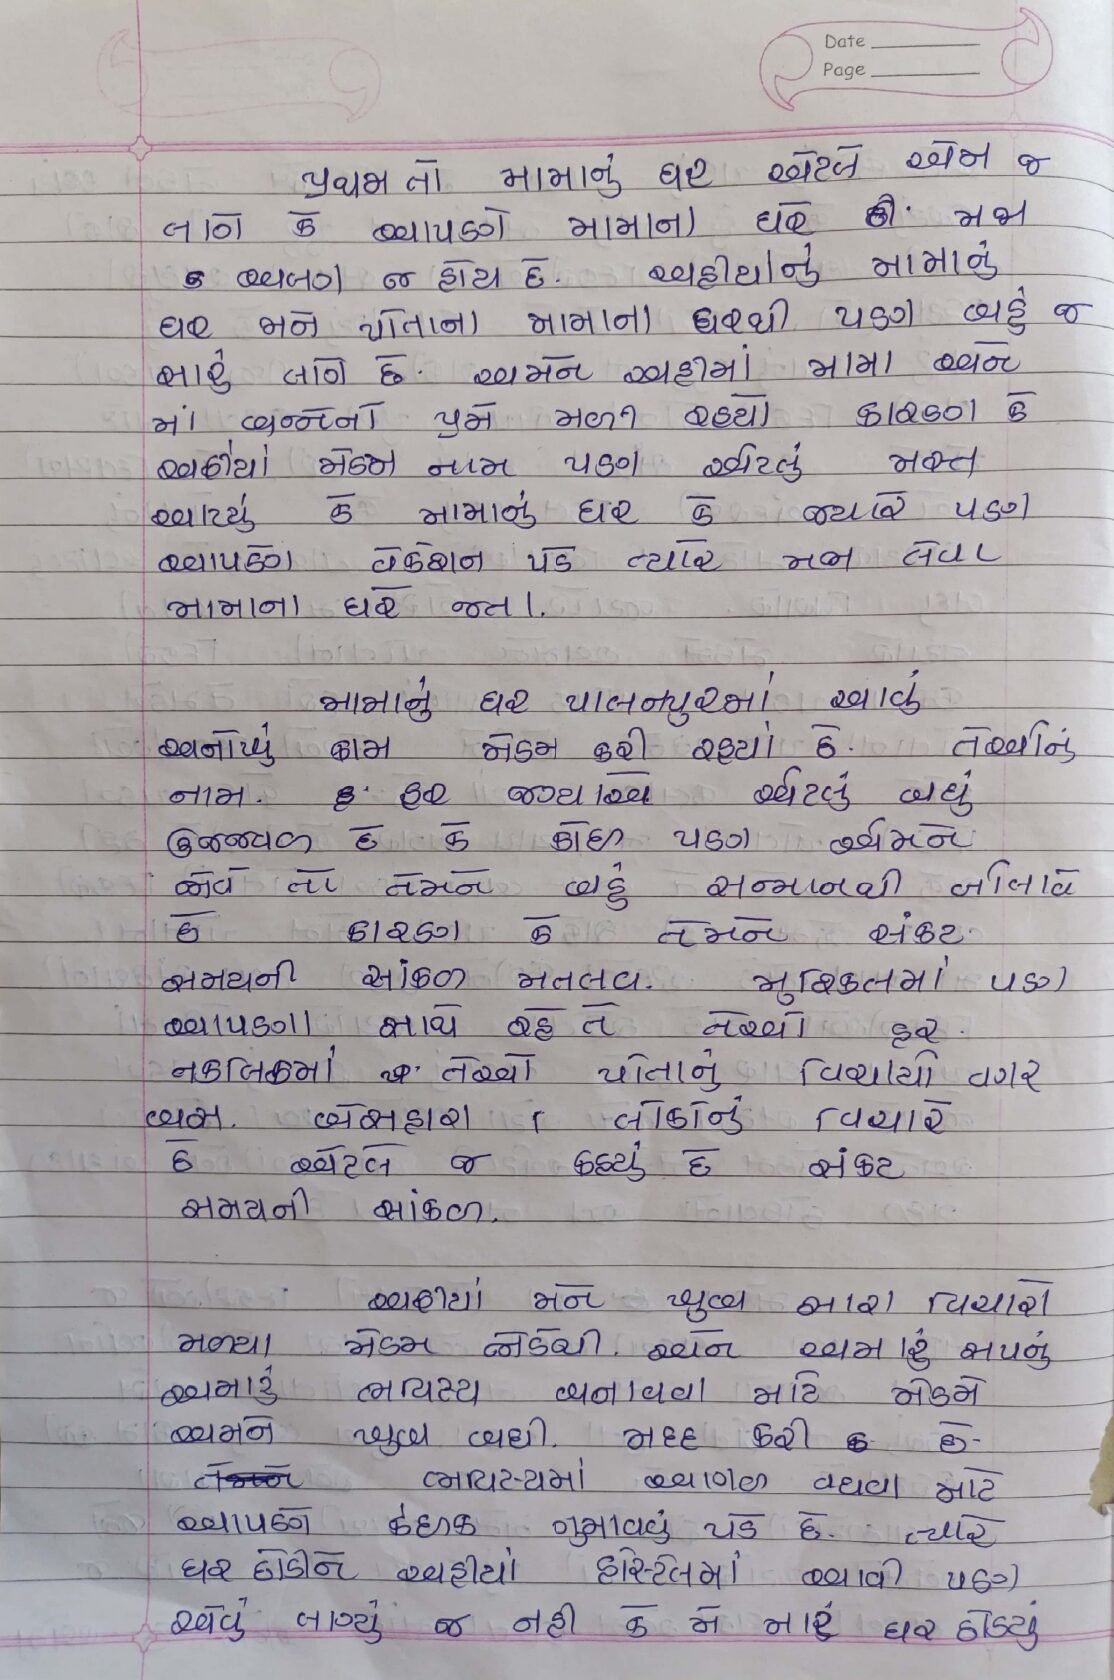 Date
Page
પ્રથમ તો મામાનું ઘર એટલે એમ જ
લાગે કે આપણે મામાના ઘરે મજા
અલગ જ હોય છે. અહીયાંનું મામાનું
ઘર મને પોતાના મામાના ઘરથી પણ બહુ જ
સારું લાગે છે. અમને અહીમાં મામા અને
માં બન્નેનો પ્રેમ મળતો રહ્યો કારણ કે
અહીયાં મેડમે નામ પણ એટલું મસ્ત
આપ્યું કે મામાનું ઘર કે જ્યારે પણ
આપણે વેકેશન પડે ત્યારે મજા લેવા
મામાના ઘરે જતા.
મામાનું ઘર પાલનપુરમાં આવું
અનોખું કામ મેડમ કરી રહ્યાં છે. તેઓનું
નામ. હર જગ્યાએ એટલું બધું
ઉજ્જવળ છે કે કોઈ પણ એમને
જોવે તો તેમને બહુ સન્માનથી બોલાવે
છે કારણ કે તેમને સંકટ
સમયની સાંકળ મતલબ. મુશ્કિલમાં પણ
આપણી સાથે રહે તે તેઓ હર
તકલિફમાં તેઓ પોતાનું વિચાર્યા વગર
બસ. બેસહારા લોકોનું વિચારે
છે એટલે જ કહ્યું છે સંકટ
સમયની સાંકળ.
અહીયાં મને ખુબ સારા વિચારો
મળ્યા મેડમ જોડેથી. અને અમારું સપનું
અમારું ભવિષ્ય બનાવવા માટે મેડમે
અમને ખુબ બધી. મદદ કરી છે.
ભવિષ્યમાં આગળ વધવા માટે
આપણને કંઈક ગુમાવવું પડે છે. ત્યારે
ઘર છોડીને અહીયાં હોસ્ટેલમાં આવી પણ
એવું લાગ્યું જ નહી કે મે મારું ઘર છોડ્યું